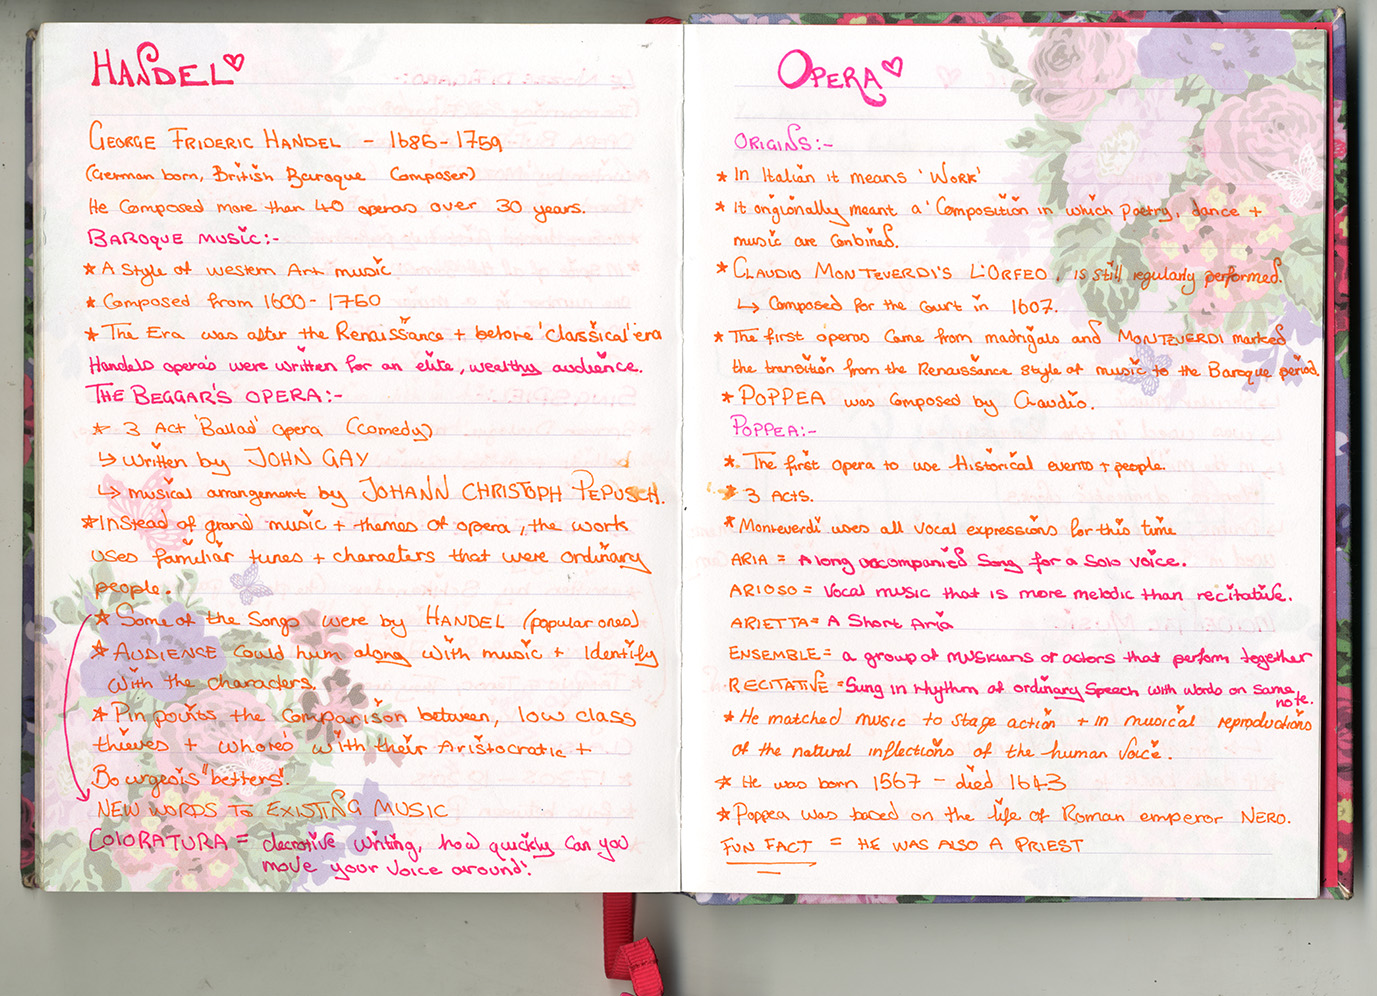 HANDEL
GEORGE FRIDERIC HANDEL - 1685-1759
(German born, British Baroque Composer)
He Composed more than 40 operas over 30 years.
BAROQUE MUSIC:-
* A Style of western Art music
* Composed from 1600-1750
* The Era was after the Renaissance + before 'Classical' era
Handels opera's were written for an elite, wealthy audience.
THE BEGGAR'S OPERA:-
* 3 Act 'Ballad' opera (comedy)
↳ written by JOHN GAY
↳ musical arrangement by JOHANN CHRISTOPH PEPUSCH.
* Instead of grand music + themes of opera, the work
uses familiar tunes + characters that were ordinary
people.
* Some of the Songs were by HANDEL (popular ones)
* AUDIENCE Could hum along with music + Identify
with the characters.
* Pin points the Comparison between, low class
thieves + whore's with their Aristocratic +
Bourgeois "betters".
NEW WORDS TO EXISTING MUSIC
COLORATURA = decrative writing, how quickly can you
move your voice around!
OPERA
ORIGINS:-
* In Italian it means 'WORK'
* It origionally meant a 'Composition in which poetry, dance +
music are combined.
* CLAUDIO MONTEVERDI'S L'ORFEO, is still regularly performed.
↳ Composed for the Court in 1607.
* The first operas Came from madrigals and MONTEVERDI marked
the transition from the Renaissance style of music to the Baroque period.
* POPPEA was Composed by Claudio.
POPPEA:-
* The first opera to use Historical events + people.
* 3 ACTS.
* Monteverdi uses all vocal expressions for this time
ARIA = A long accompanied Song for a Solo voice.
ARIOSO = Vocal music that is more melodic than recitative.
ARIETTA = A Short Aria
ENSEMBLE = a group of musicians or actors that perform together
RECITATIVE = Sung in rhythm of ordinary Speech with words on same
note.
* He matched music to Stage action + in musical reproductions
of the natural inflections of the human Voice.
* He was born 1567 - died 1643
* Poppea was based on the life of Roman emperor NERO.
FUN FACT = HE WAS ALSO A PRIEST